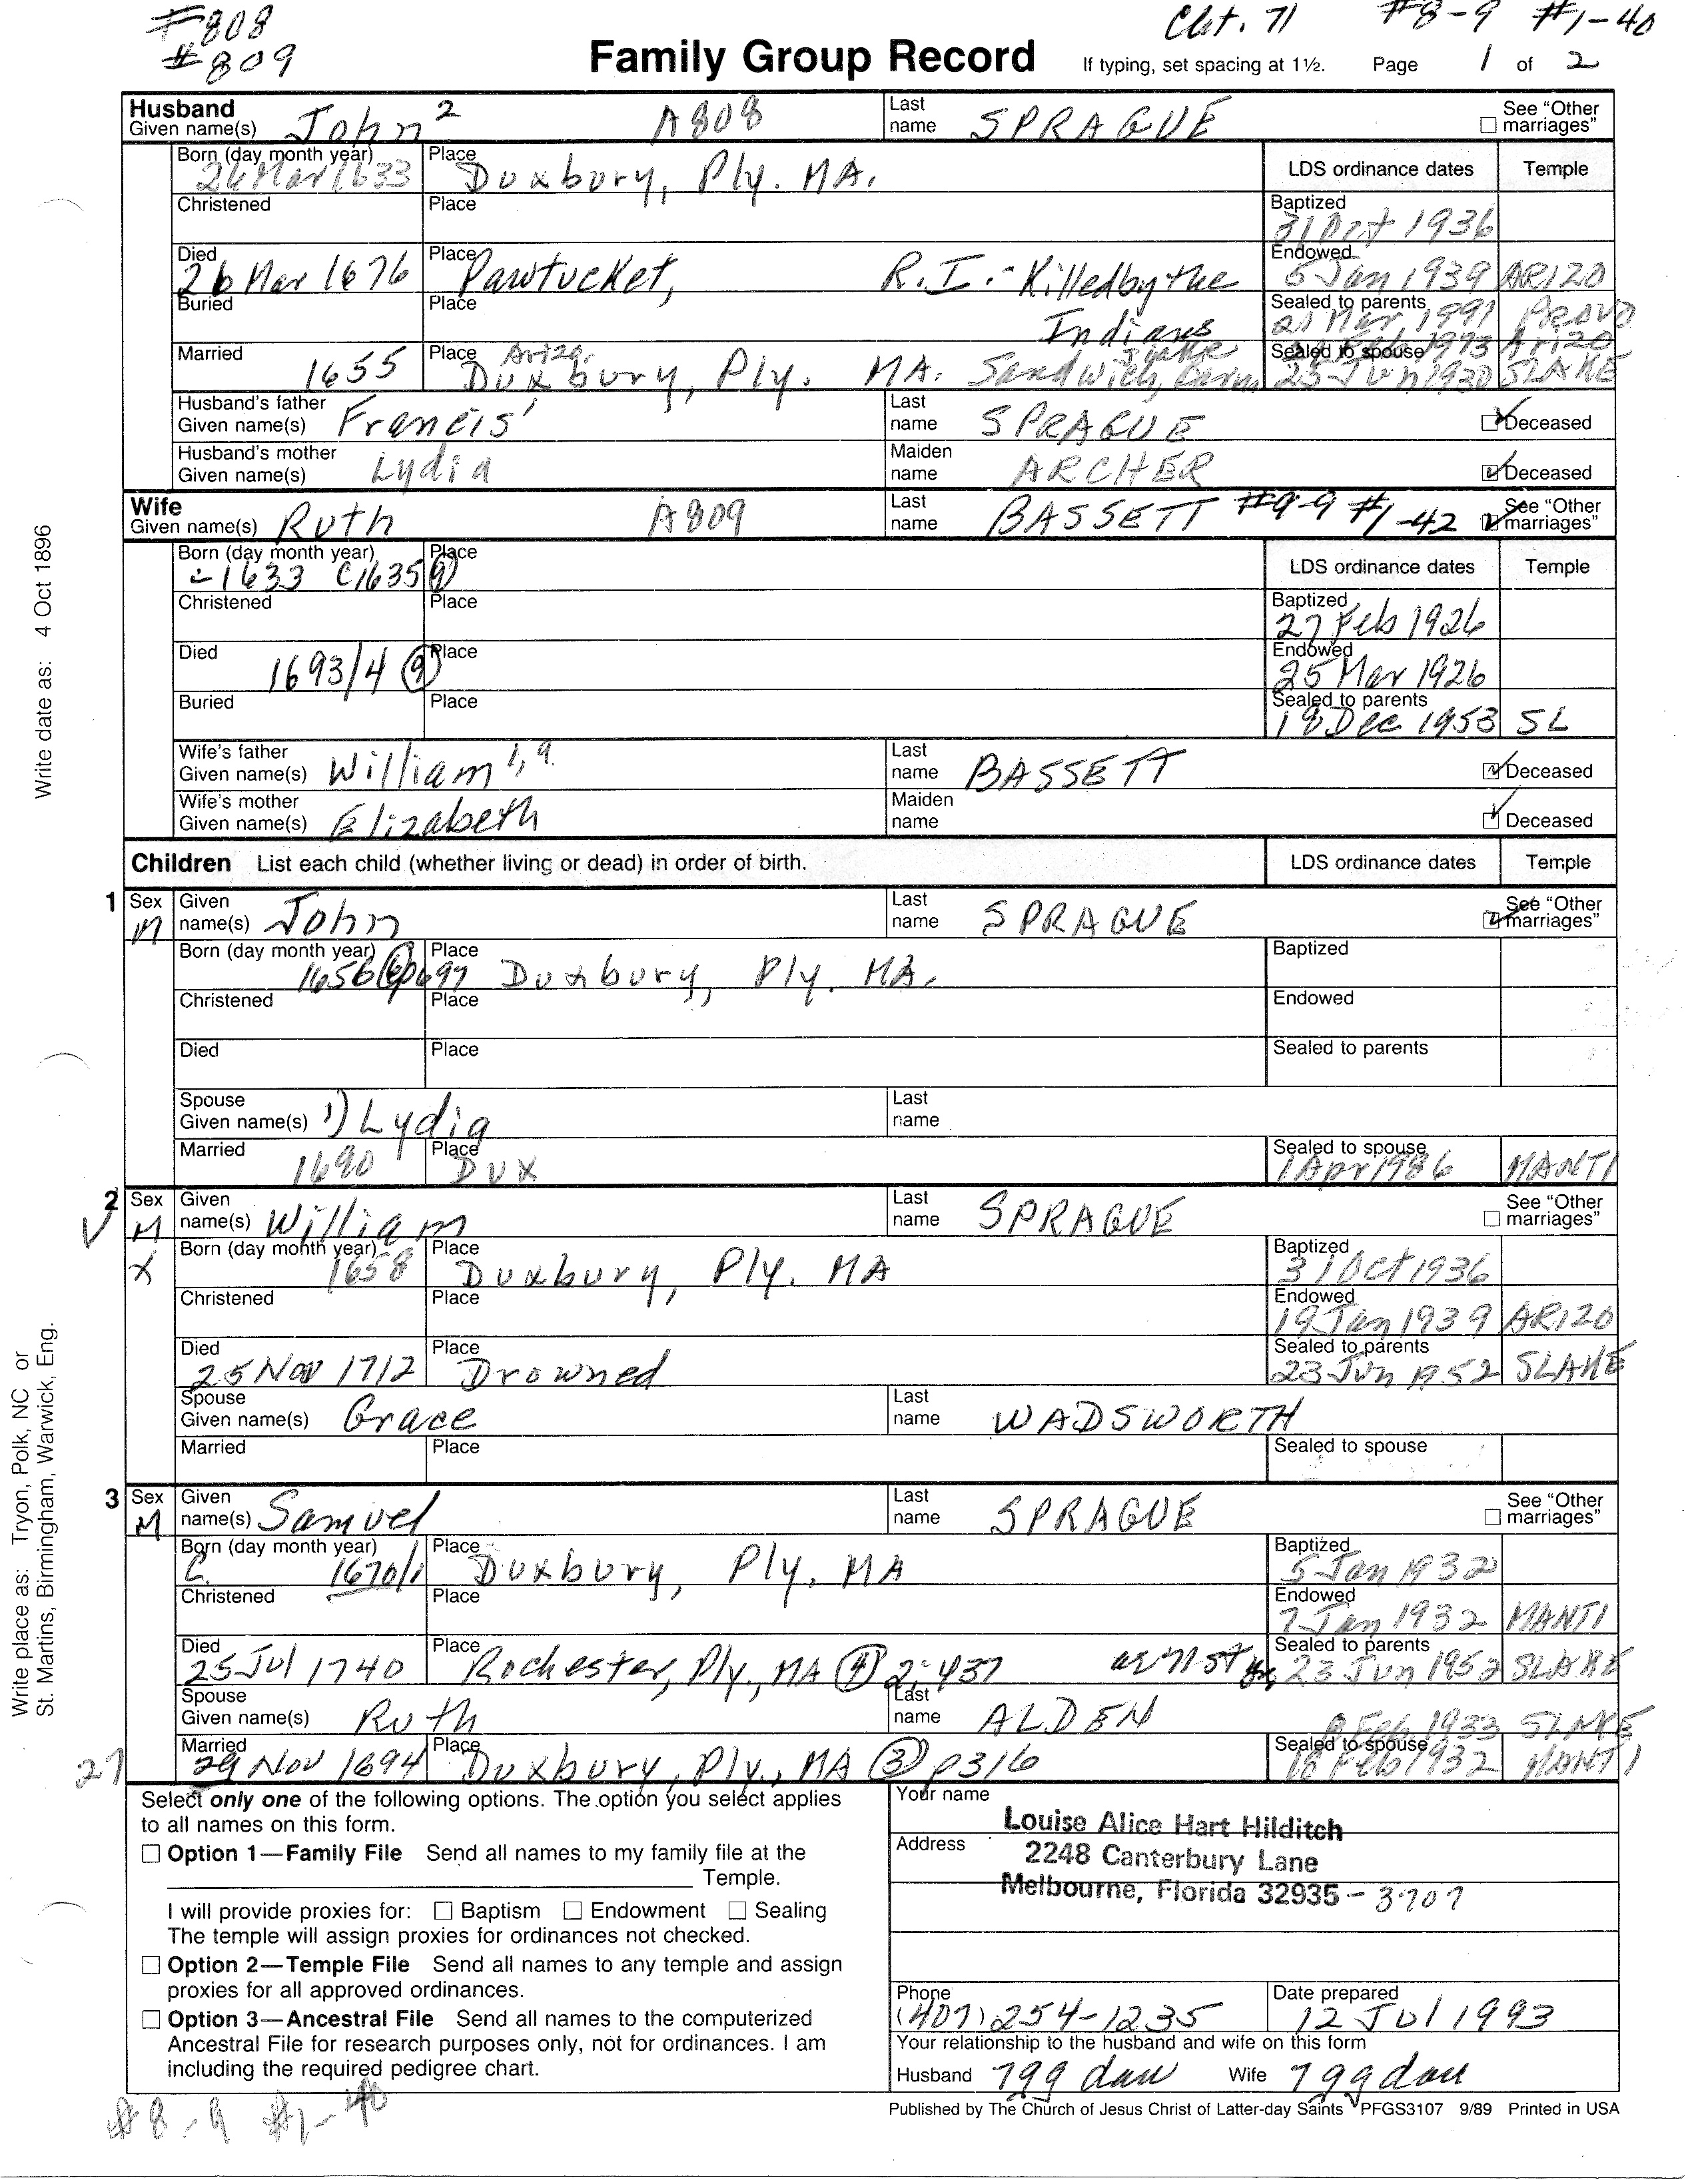 #808 Cht. 71 #8-9 #1-40
#809 Family Group Record If typing, set spacing at 1½. Page 1 of 2
Husband Given name(s) John 2 A808 Last name SPRAGUE See "Other marriages"
Born (day month year) 26 Mar 1633 Place Duxbury, Ply. MA. LDS ordinance dates Temple
Christened Place Baptized 31 Oct 1936
Died 26 Mar 1676 Place Pawtucket, R.I. - Killed by the Indians Endowed 5 Jan 1939 ARIZO
Buried Place Sealed to parents 21 Mar 1991 PROVO
Married 1655 Place Ariz. Duxbury, Ply. MA. Sandwich, Sealed to spouse 1993 Arizo 25 Jun 1930 SLAKE
Husband's father Given name(s) Francis' Last name SPRAGUE Deceased
Husband's mother Given name(s) Lydia Maiden name ARCHER Deceased
Wife Given name(s) Ruth A809 Last name BASSETT #9-9 #1-42 See "Other marriages"
Born (day month year) 1633 C1635 (9) Place LDS ordinance dates Temple
Christened Place Baptized 27 Feb 1926
Died 1693/4 (9) Place Endowed 25 Mar 1926
Buried Place Sealed to parents 18 Dec 1953 SL
Wife's father Given name(s) William 1,9. Last name BASSETT Deceased
Wife's mother Given name(s) Elizabeth Maiden name Deceased
Children List each child (whether living or dead) in order of birth. LDS ordinance dates Temple
1 Sex M Given name(s) John Last name SPRAGUE See "Other marriages"
Born (day month year) 1656 Place Duxbury, Ply. MA. Baptized
Christened Place Endowed
Died Place Sealed to parents
Spouse Given name(s) 1) Lydia Last name
Married 1690 Place DUX Sealed to spouse 1 Apr 1986 MANTI
2 Sex M Given name(s) William Last name SPRAGUE See "Other marriages"
X Born (day month year) 1658 Place Duxbury, Ply. MA Baptized 31 Oct 1936
Christened Place Endowed 19 Jan 1939 ARIZO
Died 25 Nov 1712 Place Drowned Sealed to parents 23 Jun 1952 SLAKE
Spouse Given name(s) Grace Last name WADSWORTH
Married Place Sealed to spouse
3 Sex M Given name(s) Samuel Last name SPRAGUE See "Other marriages"
Born (day month year) C. 1670/1 Place Duxbury, Ply. MA Baptized 5 Jan 1932
Christened Place Endowed 7 Jan 1932 MANTI
Died 25 Jul 1740 Place Rochester, Ply., MA (4) 2:437 Sealed to parents 23 Jun 1952 SLAKE
Spouse Given name(s) Ruth Last name ALDEN Feb 1933 SLAKE
27 Married 29 Nov 1694 Place Duxbury, Ply., MA (3) p316 Sealed to spouse 18 Feb 1932 MANTI
Select only one of the following options. The option you select applies
to all names on this form.
Option 1—Family File Send all names to my family file at the
Temple.
I will provide proxies for: Baptism Endowment Sealing
The temple will assign proxies for ordinances not checked.
Option 2—Temple File Send all names to any temple and assign
proxies for all approved ordinances.
Option 3—Ancestral File Send all names to the computerized
Ancestral File for research purposes only, not for ordinances. I am
including the required pedigree chart.
Your name Louise Alice Hart Hilditch
Address 2248 Canterbury Lane
Melbourne, Florida 32935 - 3707
Phone (407) 254-1235 Date prepared 12 Jul 1993
Your relationship to the husband and wife on this form
Husband 7gg dau Wife 7gg dau
#8-9 #1-40
Published by The Church of Jesus Christ of Latter-day Saints PFGS3107 9/89 Printed in USA
Write date as: 4 Oct 1896
Write place as: Tryon, Polk, NC or
St. Martins, Birmingham, Warwick, Eng.